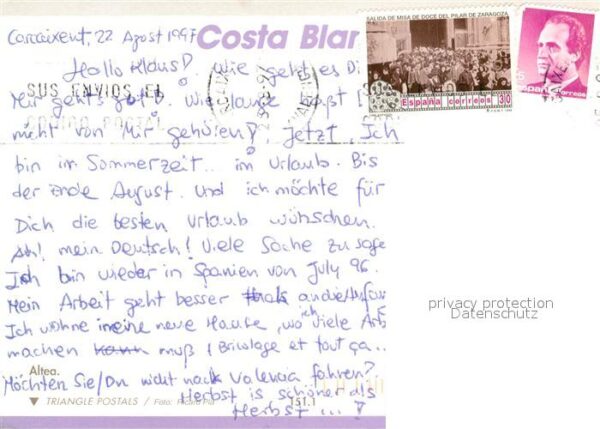 Carcaixent, 22 Agost 1997
Costa Blan
SALIDA DE MISA DE DOCE DEL PILAR DE ZARAGOZA
España correos 30
España correos
Hallo Klaus! Wie geht es Di
SUS ENVIOS EL
Mir geht's gut!. Wie lange
CODIGO POSTAL
nicht von Mir gehören!. Jetzt, Ich
bin in Sommerzeit... im Urlaub. Bis
der Ende August. Und ich möchte für
Dich die besten Urlaub wünschen.
Ah! mein Deutsch! Viele Sache zu sage
Ich bin wieder in Spanien von July 96.
Mein Arbeit geht besser
Ich wohne in eine neue Hause, wo ich viele Arb
machen kann muß (Bricolage et tout ça...
Möchten Sie/Du nicht nach Valencia fahren?
Herbst is schöner als
Herbst ... !
Altea.
▼ TRIANGLE POSTALS / Foto: Ricard Pla
151.1
privacy protection
Datenschutz